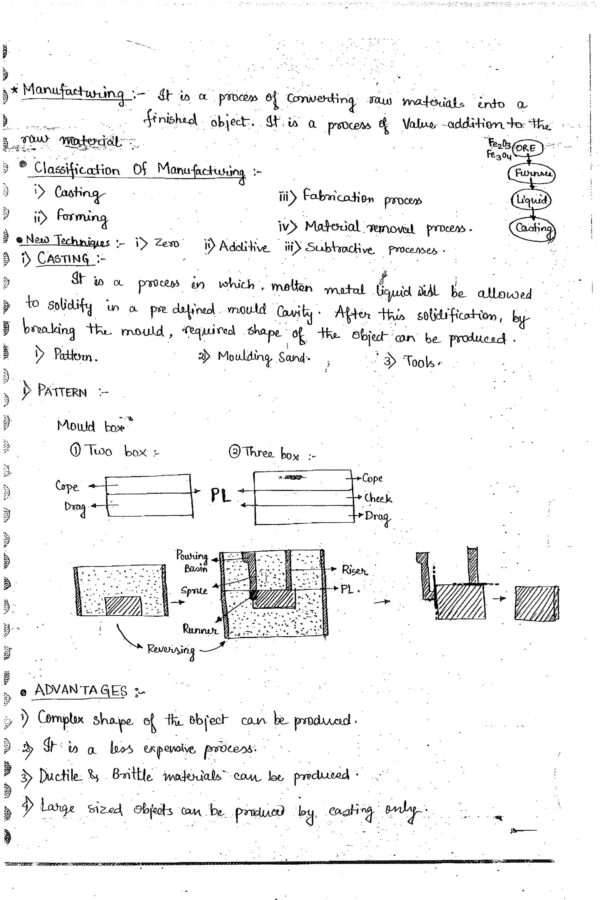 * Manufacturing :- It is a process of converting raw materials into a
finished object. It is a process of Value addition to the
raw material
Fe2O3
Fe3O4
ORE
Furnace
Liquid
Casting
• Classification Of Manufacturing :-
i) Casting
iii) Fabrication process
ii) Forming
iv) Material removal process.
• New Techniques :- i) Zero ii) Additive iii) Subtractive processes.
i) CASTING :-
It is a process in which, molten metal liquid be allowed
to solidify in a pre defined mould Cavity. After this solidification, by
breaking the mould, required shape of the object can be produced.
1) Pattern. 2) Moulding Sand. 3) Tools.
1) PATTERN :-
Mould box
① Two box :- ② Three box :-
Cope
Drag
PL
Cope
Cheek
Drag
Pouring
Basin
Sprue
Runner
Riser
PL.
Reversing
• ADVANTAGES :-
1) Complex shape of the object can be produced.
2) It is a less expensive process.
3) Ductile & Brittle materials can be produced.
4) Large sized objects can be produced by casting only.